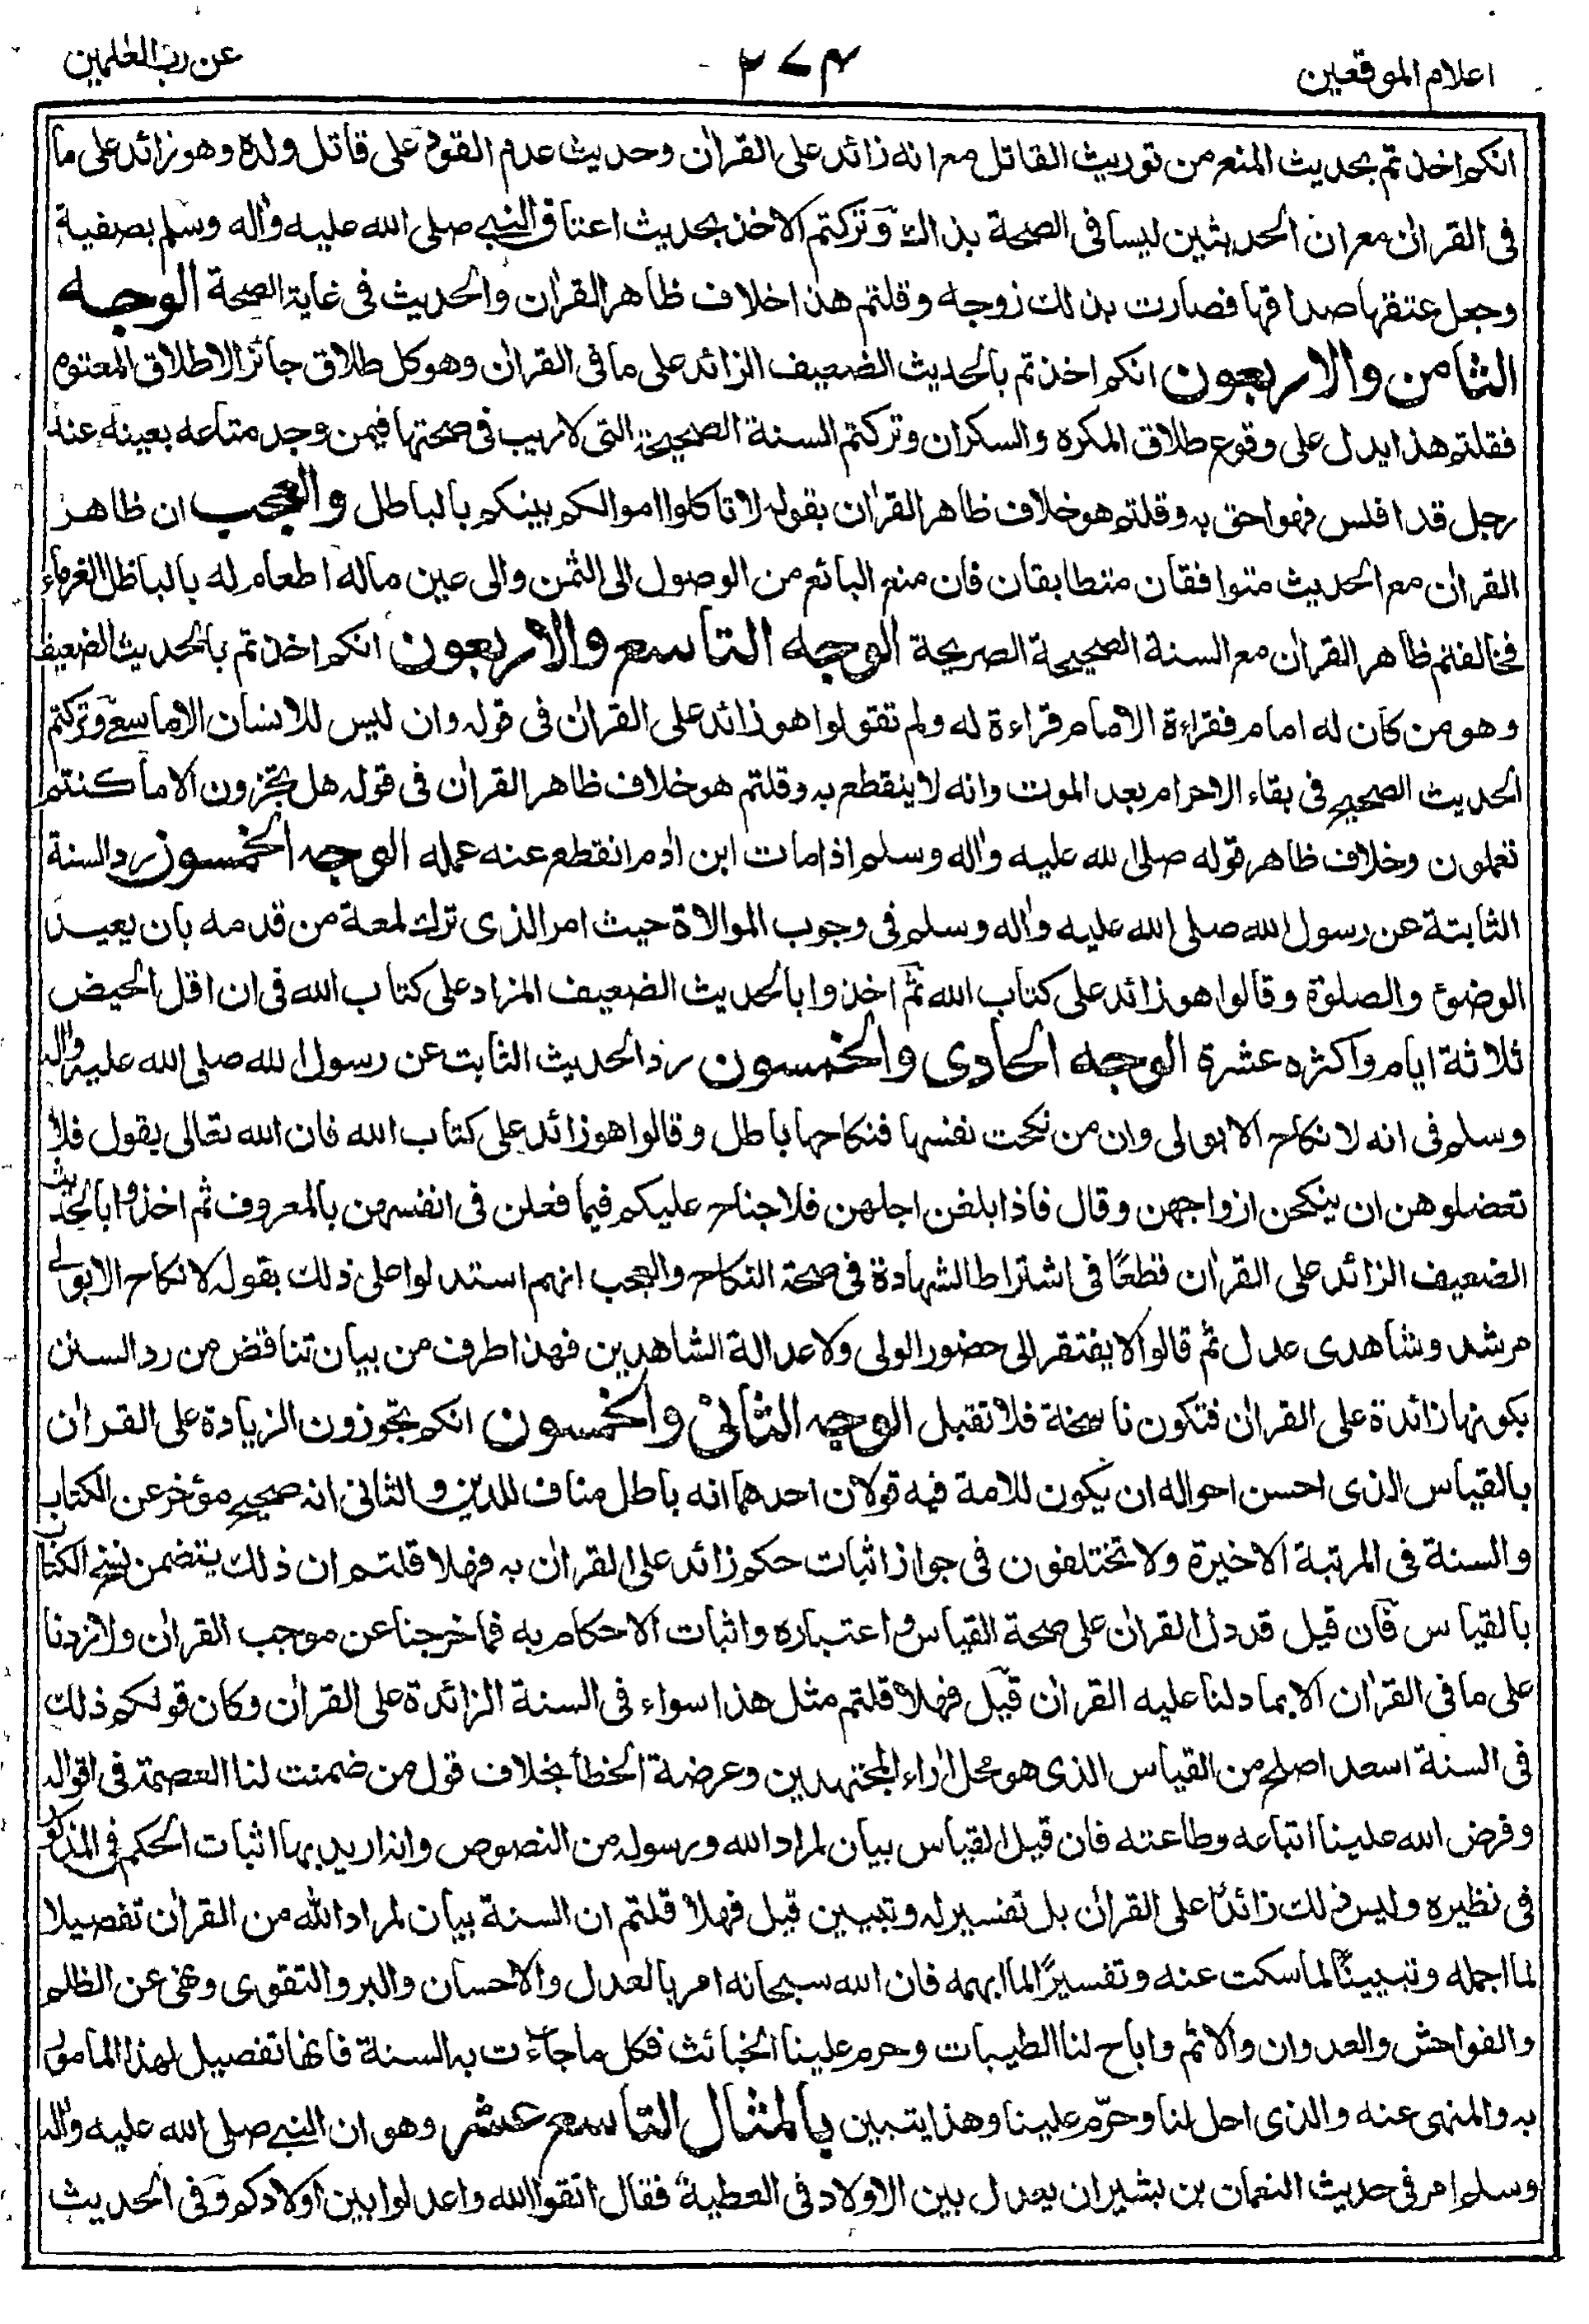 اعلام الموقعين
٢٧٤
عن رب العلمين
انكم اخذتم بحديث المنع من توريث القاتل مع انه زائد على القرأن وحديث عدم القود على قاتل ولده وهو زائد على ما
فى القرأن مع ان الحديثين ليسا فى الصحة بذاك وتركتم الاخذ بحديث اعتاق النبي صلى الله عليه وأله وسلم بصفية
وجعل عتقها صداقها فصارت بذلك زوجه وقلتم هذا خلاف ظاهر القرأن والحديث فى غاية الصحة الوجه
الثامن والاربعون انكم اخذتم بالحديث الضعيف الزائد على ما فى القرأن وهو كل طلاق جائز الا طلاق المعتوم
فقلتم هذا يدل على وقوع طلاق المكره والسكران وتركتم السنة الصحيحة التى لا ريب فى صحتها فيمن وجد متاعه بعينه عند
رجل قد افلس فهو احق به وقلتم هو خلاف ظاهر القرأن بقوله لا تاكلوا اموالكم بينكم بالباطل والعجب ان ظاهر
القرأن مع الحديث متوافقان متطابقان فان منع البائع من الوصول الى الثمن والى عين ماله اطعام له بالباطل الغرماء
فخالفتم ظاهر القرأن مع السنة الصحيحة الصريحة الوجه التاسع والاربعون انكم اخذتم بالحديث الضعيف
وهو من كان له امام فقراءة الامام قراءة له ولم تقولوا هو زائد على القرأن فى قوله وان ليس للانسان الا ما سعى وتركتم
الحديث الصحيح فى بقاء الاحرام بعد الموت وانه لا ينقطع به وقلتم هو خلاف ظاهر القرأن فى قوله هل تجزون الا ما كنتم
تعملون وخلاف ظاهر قوله صلى الله عليه وأله وسلم اذا مات ابن أدم انقطع عنه عمله الوجه الخمسون رد السنة
الثابتة عن رسول الله صلى الله عليه وأله وسلم فى وجوب الموالاة حيث امر الذى ترك لمعة من قدمه بان يعيد
الوضوء والصلوة وقالوا هو زائد على كتاب الله ثم اخذوا بالحديث الضعيف المزاد على كتاب الله فى ان اقل الحيض
ثلاثة ايام واكثره عشرة الوجه الحادى والخمسون رد الحديث الثابت عن رسول الله صلى الله عليه وأله
وسلم فى انه لا نكاح الا بولى وان من نكحت نفسها فنكاحها باطل وقالوا هو زائد على كتاب الله فان الله تعالى يقول فلا
تعضلوهن ان ينكحن ازواجهن وقال فاذا بلغن اجلهن فلا جناح عليكم فيما فعلن فى انفسهن بالمعروف ثم اخذوا بالحديث
الضعيف الزائد على القرأن قطعًا فى اشتراط الشهادة فى صحة النكاح والعجب انهم استدلوا على ذلك بقوله لا نكاح الا بولى
مرشد وشاهدى عدل ثم قالوا لا يفتقر الى حضور الولى ولا عدالة الشاهدين فهذا طرف من بيان تناقض من رد السنن
بكونها زائدة على القرأن فتكون ناسخة فلا تقبل الوجه الثانى والخمسون انكم تجوزون الزيادة على القرأن
بالقياس الذى احسن احواله ان يكون للامة فيه قولان احدهما انه باطل مناف للدين والثانى انه صحيح مؤخر عن الكتاب
والسنة فى المرتبة الاخيرة ولا تختلفون فى جواز اثبات حكم زائد على القرأن به فهلا قلتم ان ذلك يتضمن نسخ الكتاب
بالقياس فان قيل قد دل القرأن على صحة القياس واعتباره واثبات الاحكام به فما خرجنا عن موجب القرأن ولا زدنا
على ما فى القرأن الا بما دلنا عليه القرأن قيل فهلا قلتم مثل هذا سواء فى السنة الزائدة على القرأن وكان قولكم ذلك
فى السنة اسعد اصلح من القياس الذى هو محل أراء المجتهدين وعرضة الخطأ بخلاف قول من ضمنت لنا العصمة فى اقواله
وفرض الله علينا اتباعه وطاعته فان قيل القياس بيان لمراد الله ورسوله من النصوص وانه اريد بها اثبات الحكم فى المذكور
فى نظيره وليس ذلك زائدًا على القرأن بل تفسير له وتبيين قيل فهلا قلتم ان السنة بيان لمراد الله من القرأن تفصيلا
لما اجمله وتبيينًا لما سكت عنه وتفسيرًا لما ابهمه فان الله سبحانه امر بالعدل والاحسان والبر والتقوى ونهى عن الظلم
والفواحش والعدوان والاثم واباح لنا الطيبات وحرم علينا الخبائث فكل ما جاءت به السنة فانها تفصيل لهذا المامور
به والمنهى عنه والذى احل لنا وحرّم علينا وهذا يتبين بالمثال التاسع عشر وهو ان النبي صلى الله عليه وأله
وسلم امر فى حديث النعمان بن بشير ان يعدل بين الاولاد فى العطية فقال اتقوا الله واعدلوا بين اولادكم وفى الحديث